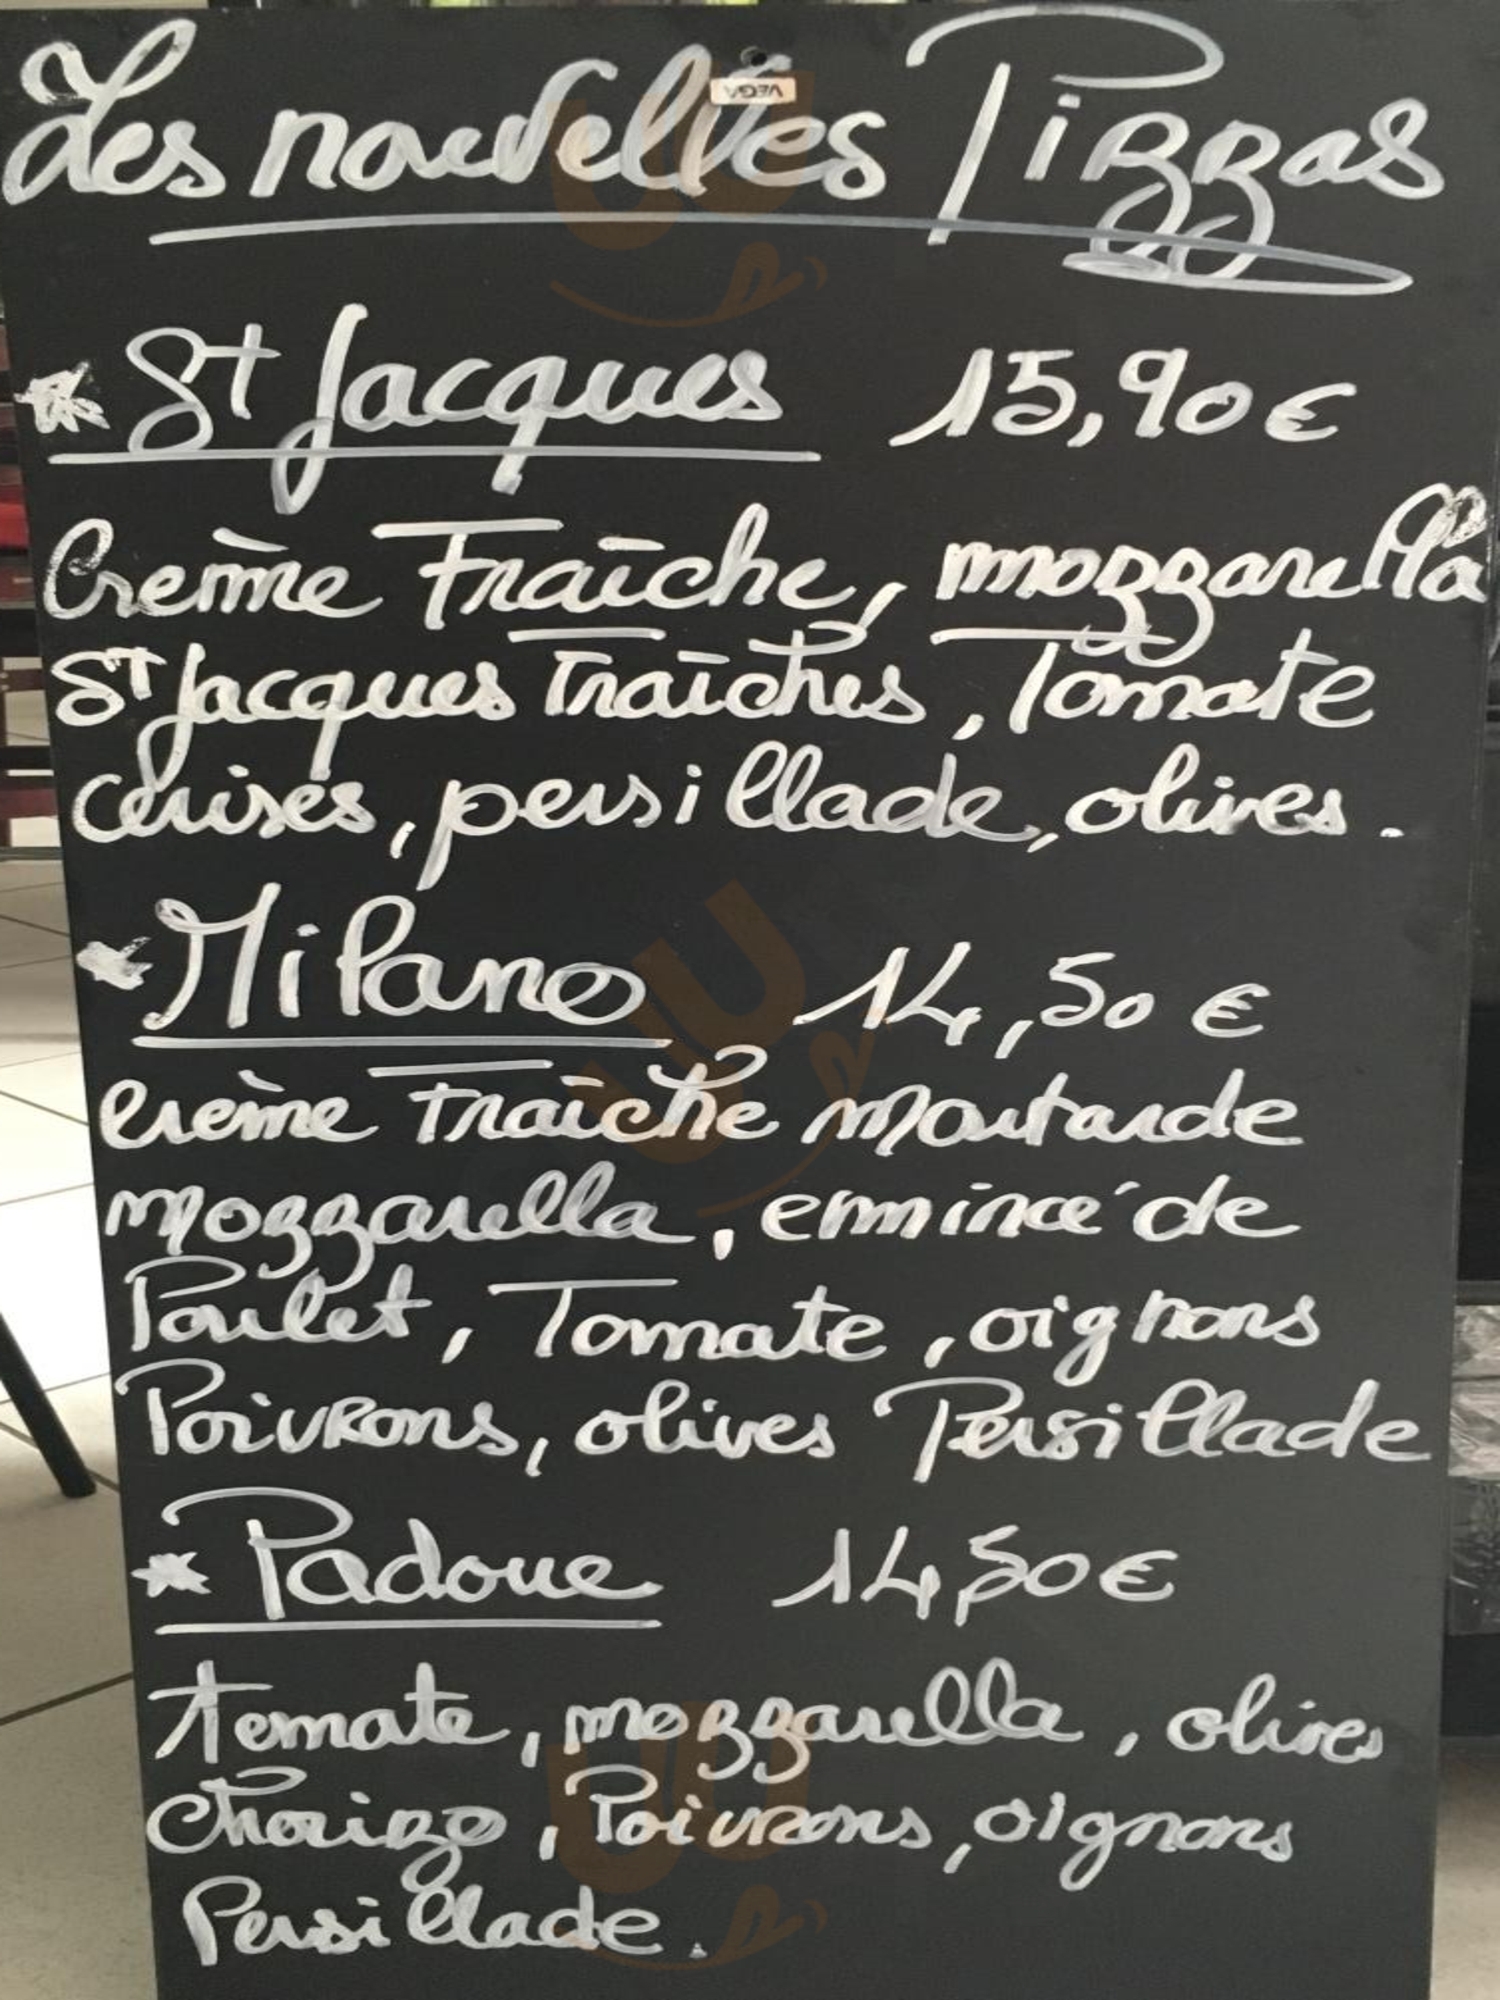 Les nouvelles Pizzas
VEGA
St Jacques 15,90€
Crème Fraîche, mozzarella
St Jacques Fraîches, Tomate
cerises, persillade, olives.
Milano 14,50 €
crème Fraîche Moutarde
mozzarella, émincé de
Poulet, Tomate, oignons
Poivrons, olives Persillade
Padoue 14,50€
tomate, mozzarella, olives
chorizo, Poivrons, oignons
Persillade.